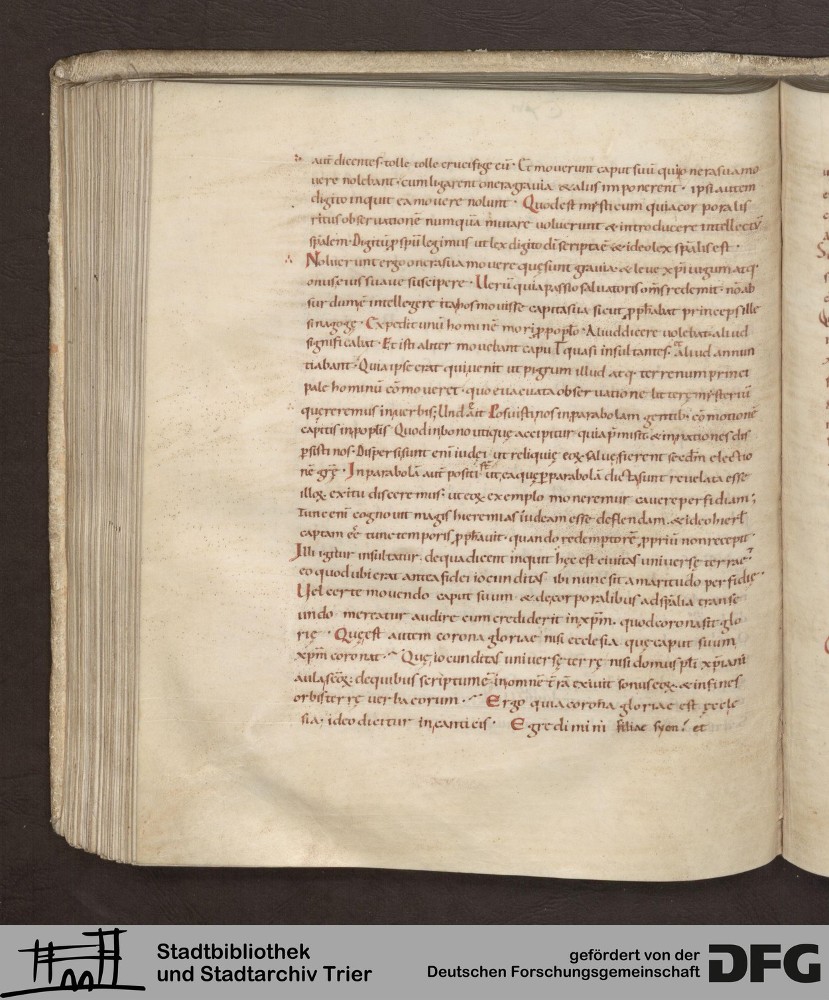 aut̄ dicentes· tolle tolle crucifige eū· Et moverunt caput suū qui onera sua mo
vere nolebant· cum ligarent onera gravia & aliis imponerent· ipsi autem
digito inquit ea movere nolunt· Quod est mysticum quia corporalis
ritus observationē numquā mutare voluerunt & introducere intellectū
sp̄alem· Digitū p spm̄ legimus ut lex digito dī scripta & ideo lex sp̄alis est·
Noluerunt ergo onera sua movere quę sunt gravia· & leve xp̄i iugum atq·
onus eius suave suscipere· Verū quia passio salvatoris om̄s redemit· nō ab
surdum ē intellegere ita hos movisse capita sua sicut pphābat princeps ille
sinagogę· Expedit unū hominē mori p poplo· Aliud dicere volebat· aliud
significabat· Et isti aliter movebant caput quasi insultantes· aliud annun
tiabant· Quia ipse erat qui venit ut pigrum illud atq· terrenum princi
pale hominū cōmoveret· quo evacuata observatione litterę mysteriū
quereremus in verbis; Und & ait Posuisti nos in parabolam gentib; cōmotionē
capitis in poplis Quod in bono utique accipitur quia p misit· & in nationes dis
psisti nos· Dispersi sunt enī iudei ut reliquię eoꝝ salvę fierent secdm̄ electio
nē grę· In parabolā aut̄ positi st̄ ut ea quę p parabolā dicta sunt revelata esse
illoꝝ exitu disceremus· ut eoꝝ exemplo moneremur cavere perfidiam;
Tunc enī cognovit magis hieremias iudeam esse deflendam· & ideo hierl̄
captam eē tunc temporis pphavit· quando redemptorē ppriū non recepit·
Illi igitur insultatur· de qua dicent inquit hęc est civitas universe terrae
eo quod ubi erat antea fidei iocunditas ibi nunc sit amaritudo perfidię·
Vel certe movendo caput suum & de corporalibus ad sp̄alia transe
undo mereatur audire cum crediderit in xp̄m· quod corona sit glo
rię· Quę est autem corona gloriae nisi ecclesia quę caput suum
xp̄m coronat· Quę iocunditas universę terrę nisi domus pli xp̄iani
aulas eoꝝ: de quibus scriptum ē in omnē trā exivit sonus eoꝝ· & in fines
orbis terrę verba eorum· Ergo quia corona gloriae est eccle
sia; ideo dicitur in canticis· Egredimini filiae syon· et
Stadtbibliothek
und Stadtarchiv Trier
gefördert von der
Deutschen Forschungsgemeinschaft
DFG